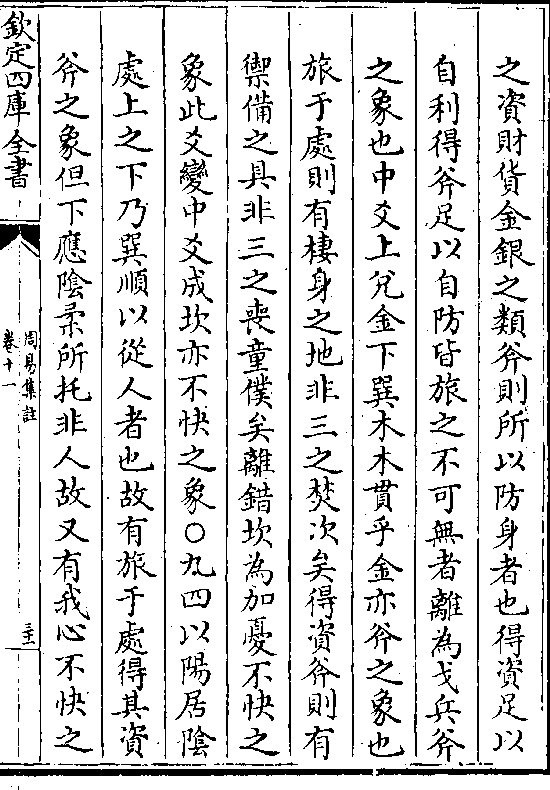 之資財貨金銀之類斧則所以防身者也得資足以
自利得斧足以自防皆旅之不可無者離為戈兵斧
之象也中爻上兌金下巽木木貫乎金亦斧之象也
旅于處則有棲身之地非三之焚次矣得資斧則有
禦備之具非三之喪童僕矣離錯坎為加憂不快之
象此爻變中爻成坎亦不快之象○九四以陽居陰
處上之下乃巽順以從人者也故有旅于處得其資
斧之象但下應陰柔所托非人故又有我心不快之
欽定四庫全書
周易集註
卷十一